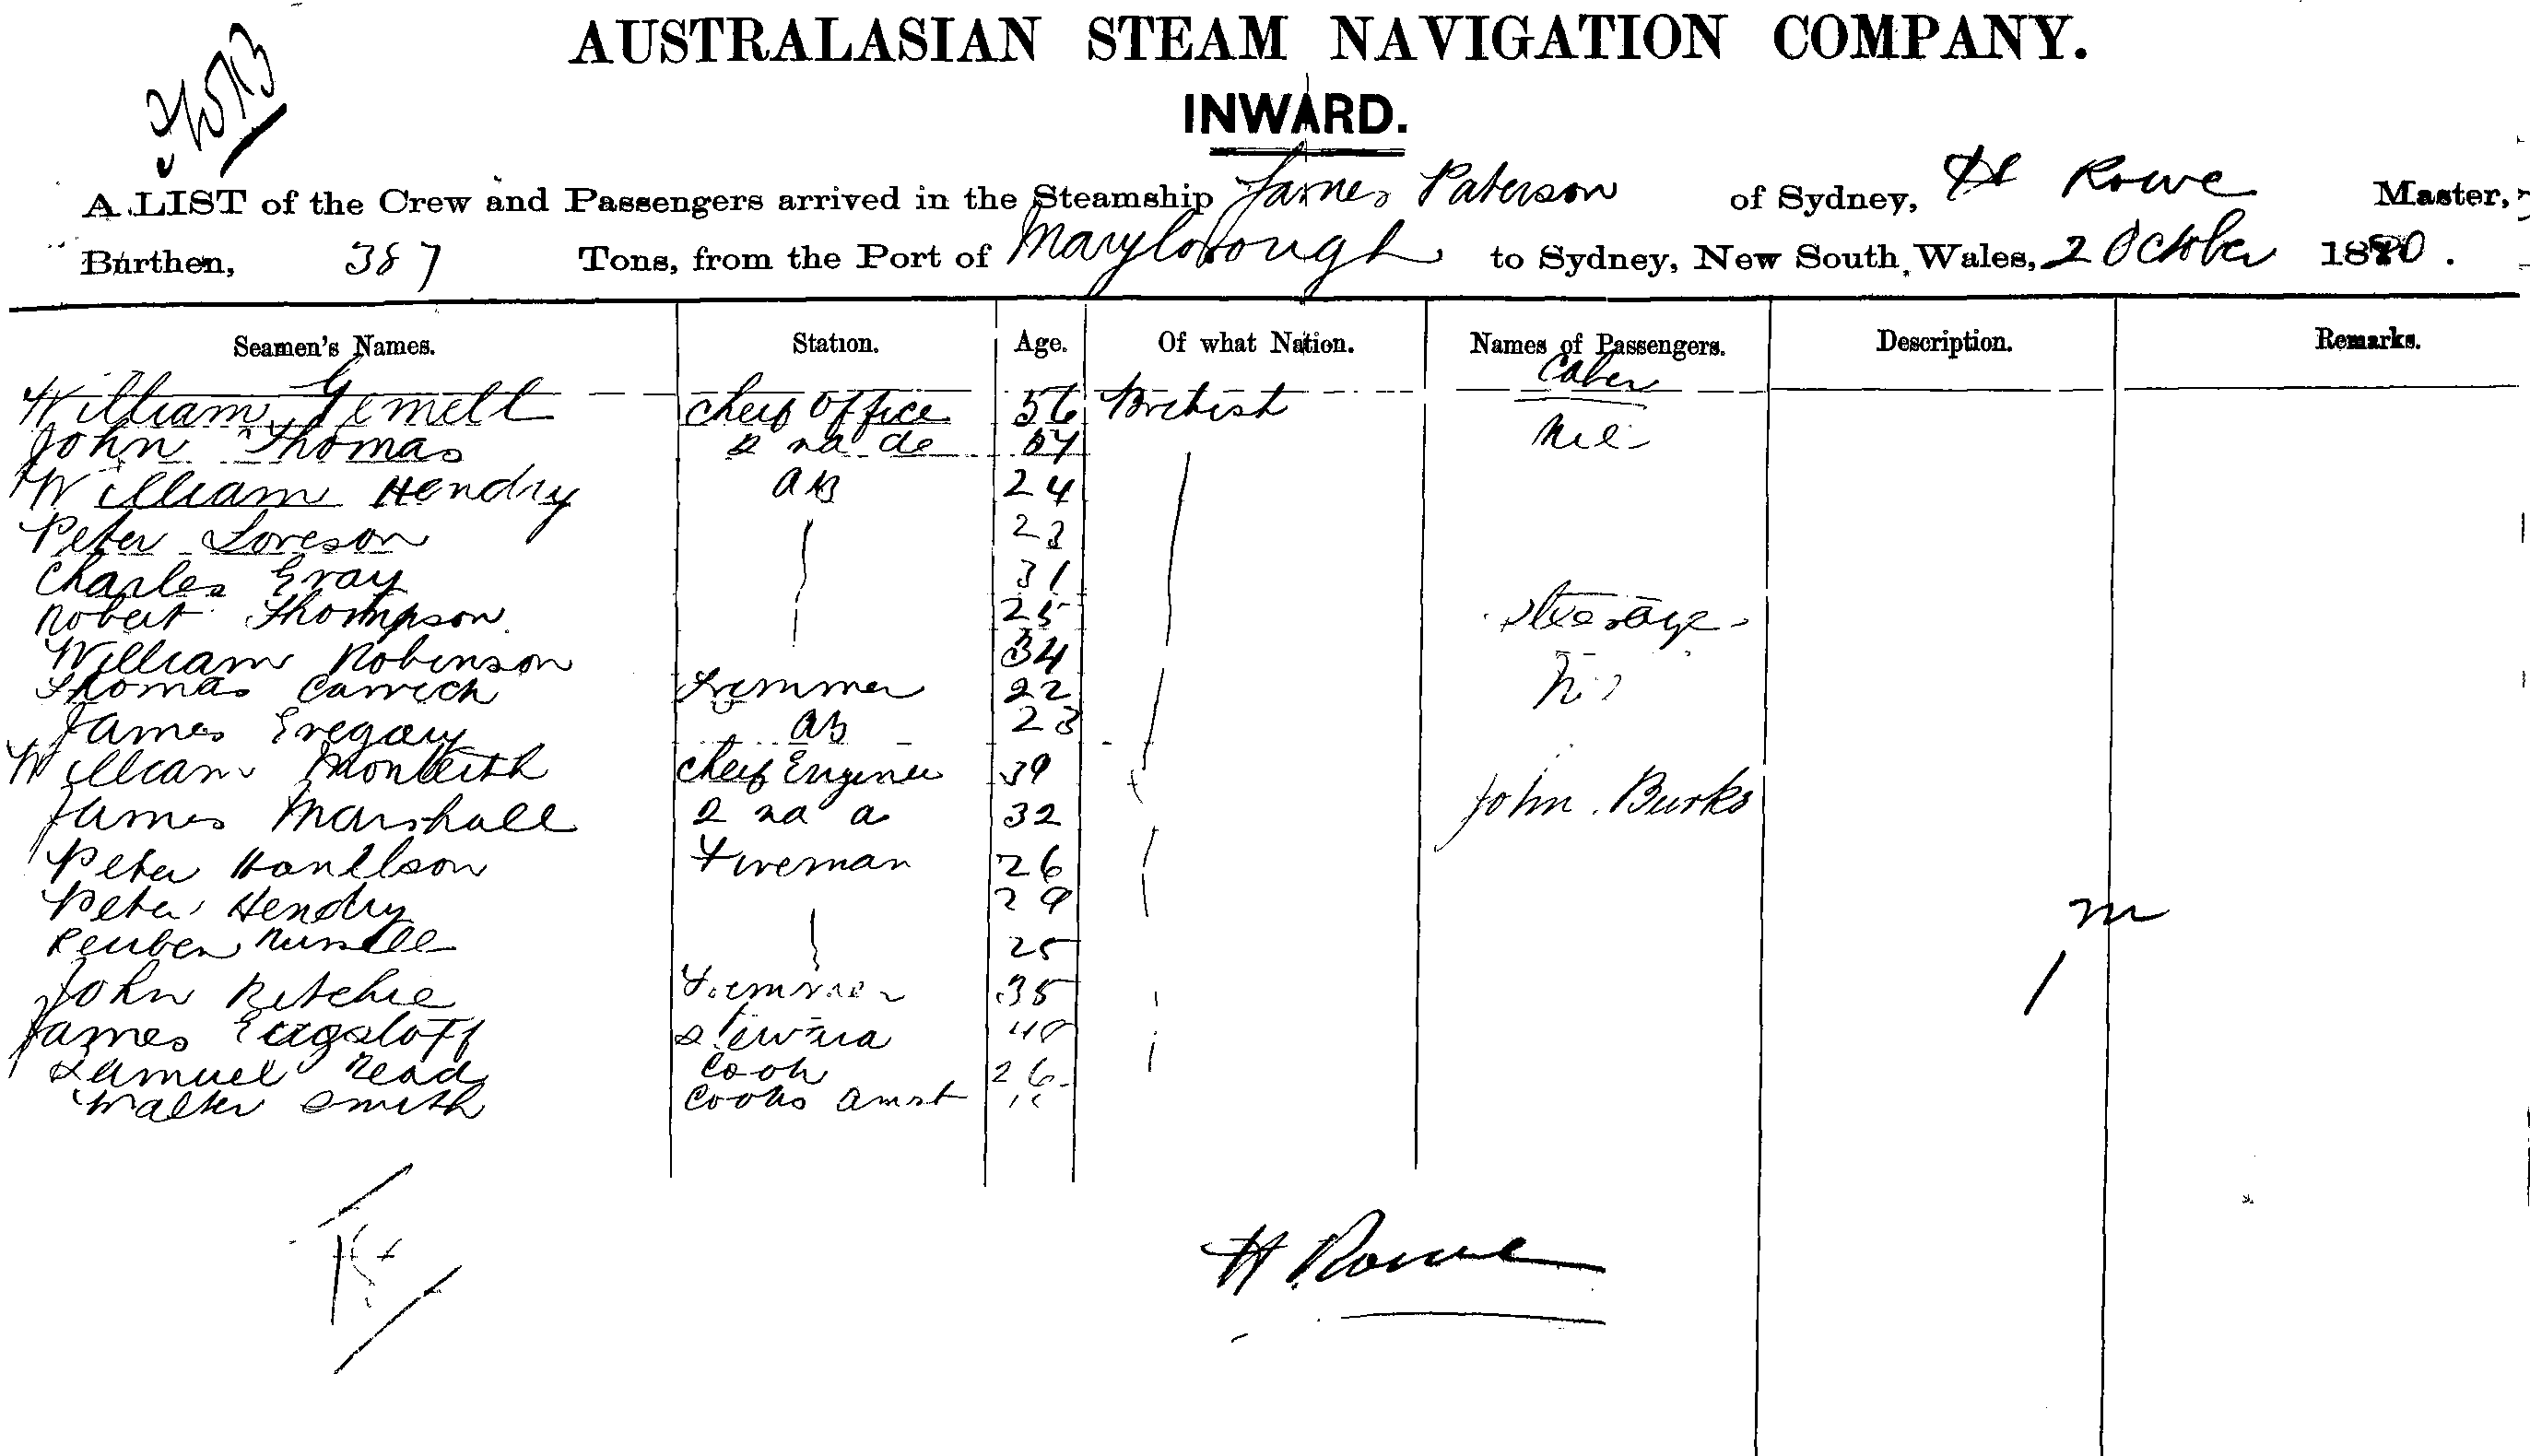 AUSTRALASIAN STEAM NAVIGATION COMPANY.
INWARD.
A LIST of the Crew and Passengers arrived in the Steamship James Paterson of Sydney, H Rowe Master,
Burthen, 387 Tons, from the Port of Maryborough to Sydney, New South Wales, 2 October 1880.
Seamen's Names. Station. Age. Of what Nation. Names of Passengers. Description. Remarks.
William Gemell Cheif Office 56 British Caben
John Thomas 2 nd do Nil
William Hendry AB 24
Peter Loreson 23
Charles Gray 31
Robert Thompson 25 Steerage
William Robinson 34
Thomas Carrick Trimmer 22
James Gregory AB 23
William Monteith Cheif Enginee 39
James Marshall 2 nd 32 John Burks
Peter Fireman 26
Peter Hendry 29
Reuben 25 m
John Ritchie Trimmer 35 1
James Steward 40
Samuel Read Cook 26
Walter Smith Cooks
H Rowe